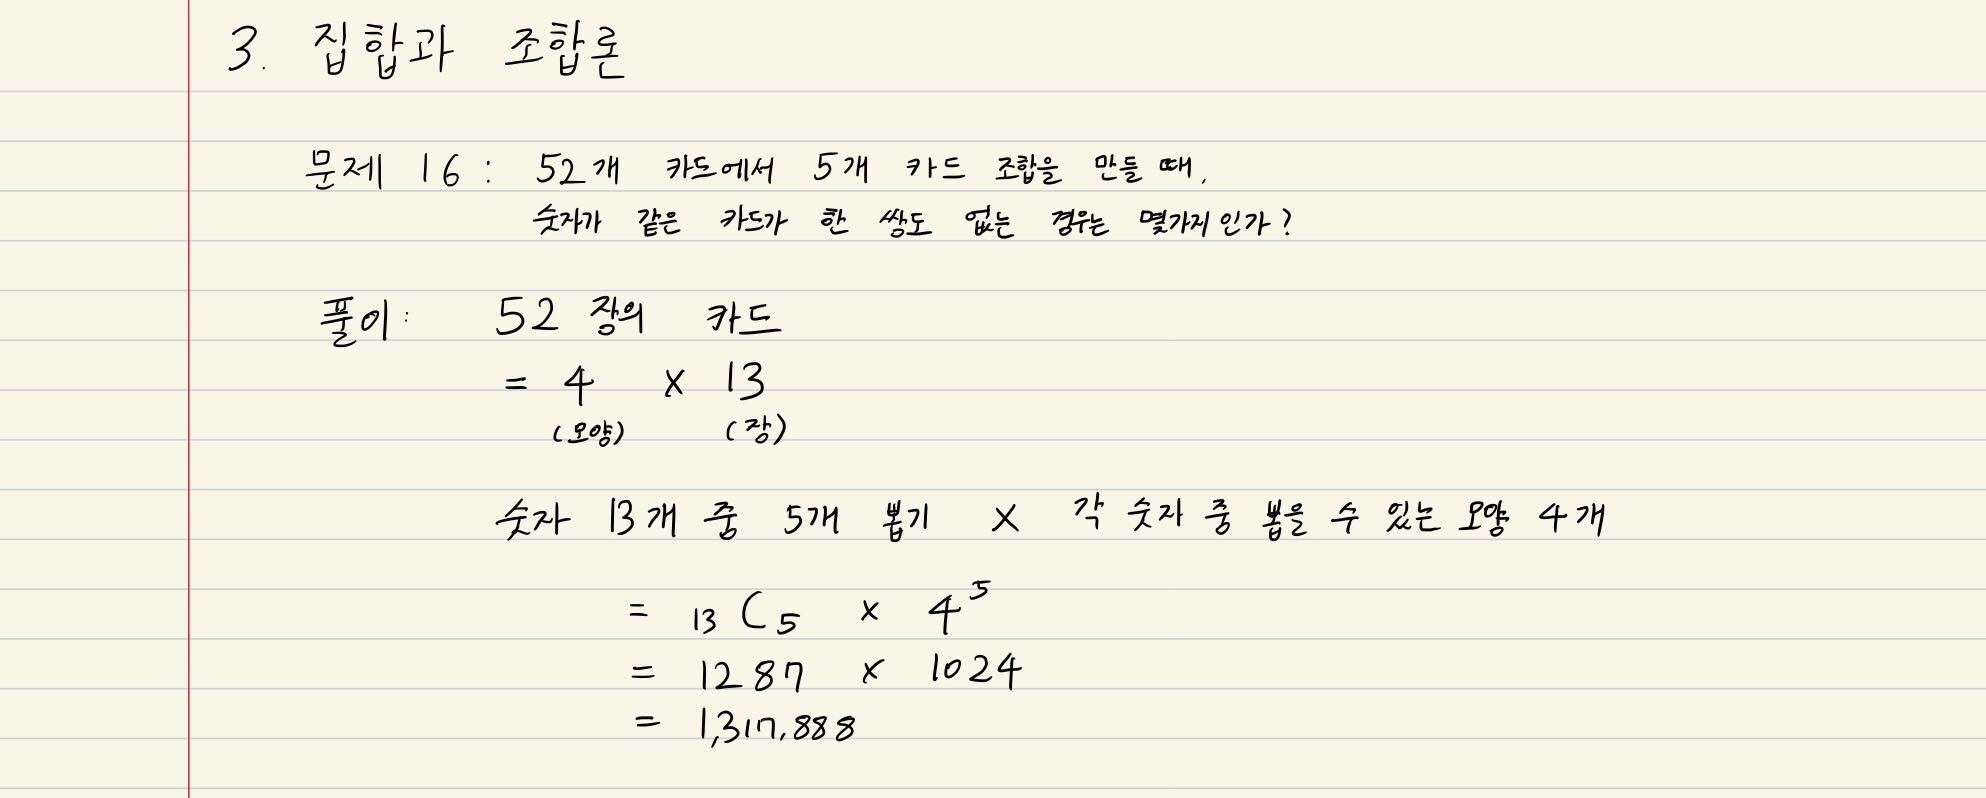 3. 집합과 조합론
문제 16 : 52개 카드에서 5개 카드 조합을 만들 때,
숫자가 같은 카드가 한 쌍도 없는 경우는 몇가지 인가?
풀이: 52 장의 카드
= 4 x 13
(모양) (장)
숫자 13개 중 5개 뽑기 x 각 숫자 중 뽑을 수 있는 모양 4개
= ₁₃C₅ x 4⁵
= 1287 x 1024
= 1,317,888